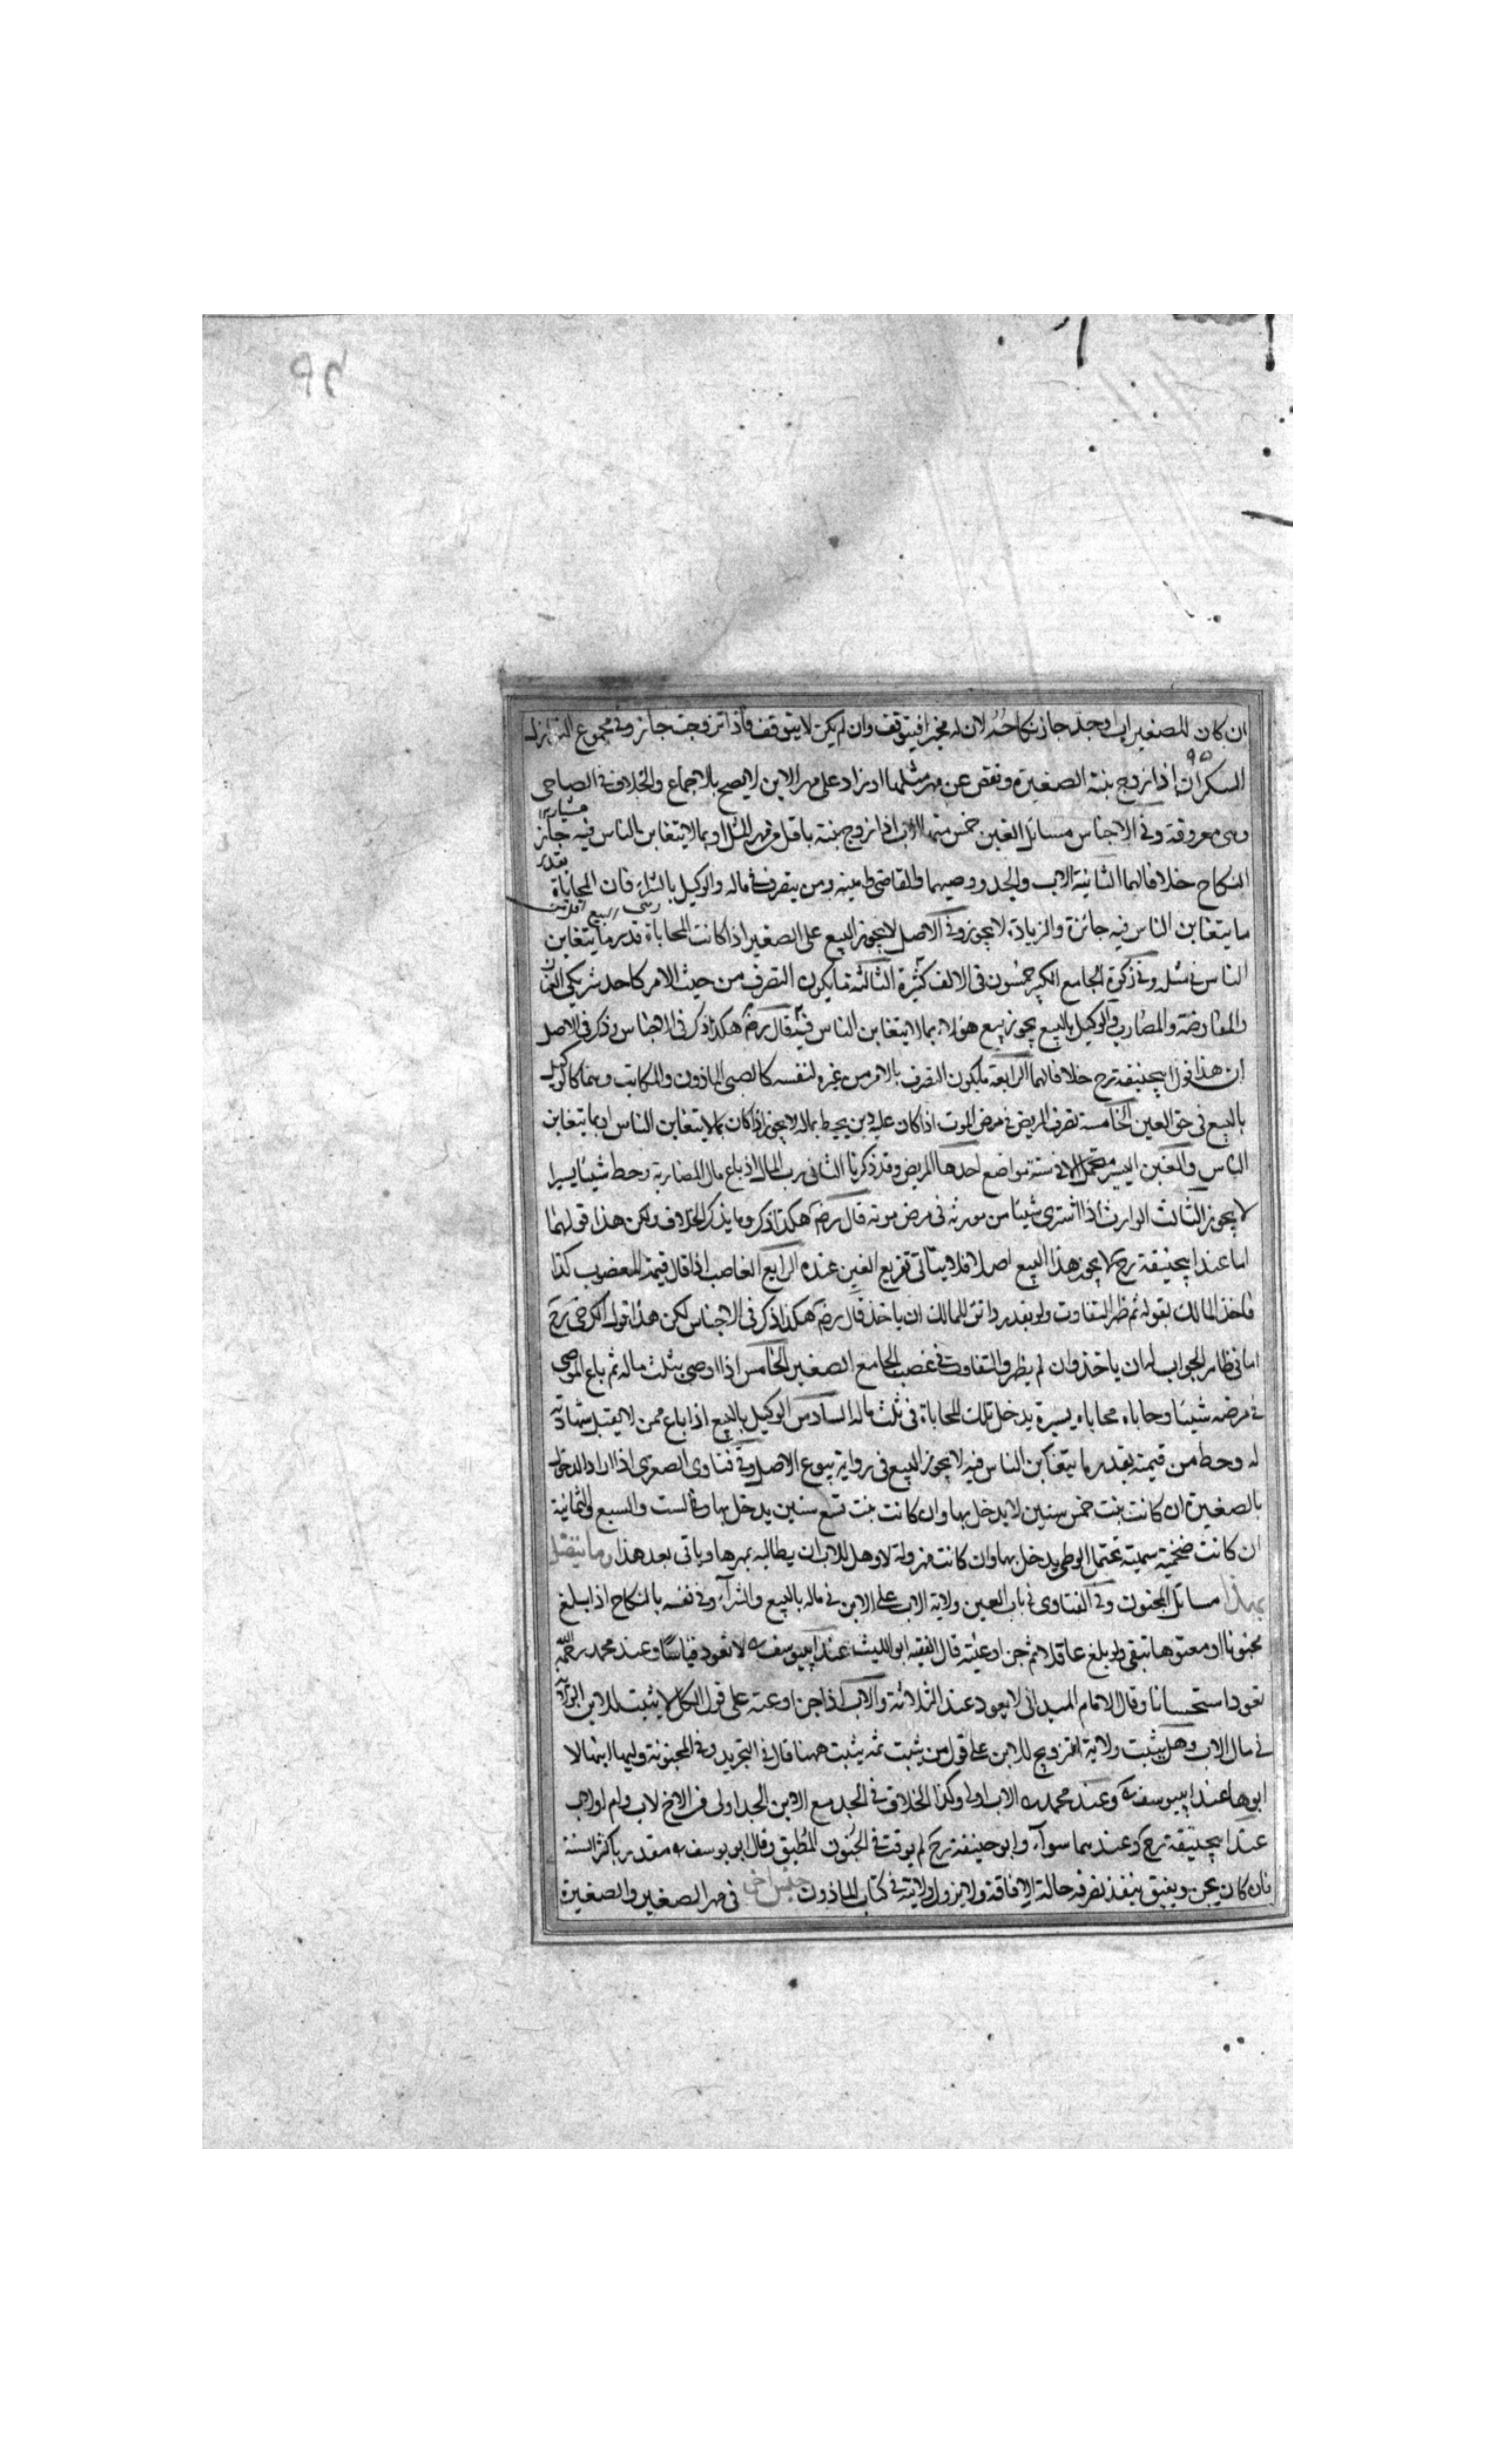 ان كان للصغير اب وجد جاز نكاحه لان له مجيزا فيتوقف وان لم يكن لا يتوقف واذا تزوجت جاز وفى مجموع النوازل
السكران اذا زوج بنته الصغيرة ونقص عن مهر مثلها او زاد على مهر الابن لا يصح بالاجماع والخلاف فى الصاحى
وهى معروفة وفى الاجناس مسائل الغبن خمس منها الاب اذا زوج بنته باقل من مهر المثل او بما لا يتغابن الناس فيه جاز
النكاح خلافا لهما الثانية الاب والجد ووصيهما والقاضى وامينه ومن يتصرف فى ماله والوكيل بالشراء فان المحاباة بقدر
ما يتغابن الناس فيه جائزة والزيادة لا يجوز وفى الاصل لا يجوز البيع على الصغير اذا كانت المحاباة قدر ما يتغابن
الناس فى مثله وفى زكوة الجامع الكبير خمسون فى الالف كثيرة الثالثة ما يكون التصرف من حيث الامر كاحد شريكى العنان
والمفاوضة والمضارب والوكيل بالبيع يجوز بيع هؤلاء بما لا يتغابن الناس فيه قال رضه هكذا ذكر فى الاجناس وذكر فى الاصل
ان هذا قول ابيحنيفة رح خلافا لهما الرابعة ما يكون التصرف بالامر من غيره لنفسه كالصبى الماذون والمكاتب وهما كالوكيل
بالبيع فى حق الغبن الخامسة تصرف المريض فى مرض الموت اذا كان عليه دين يحيط بماله لا يجوز اذا كان بما لا يتغابن الناس او بما يتغابن
الناس والغبن اليسير متحمل الا فى ستة مواضع احدها المريض وقد ذكرنا الثانى رب المال اذا باع مال المضاربة وحط شيئا يسيرا
لا يجوز الثالث الوارث اذا اشترى شيئا من مورثه فى مرض موته قال رضه هكذا ذكر وما يذكر الخلاف ولكن هذا قولهما
اما عند ابيحنيفة رح لا يجوز هذا البيع اصلا فلا يتاتى تفريع الغبن عنده الرابع الغاصب اذا قال قيمة المغصوب كذا
فاخذ المالك بقوله ثم ظهر التفاوت ولو بقدر دانق للمالك ان ياخذ قال رضه هكذا ذكر فى الاجناس لكن هذا قول الكرخى رح
اما فى ظاهر الجواب له ان ياخذ وان لم يظهر والتفاوت فى غصب الجامع الصغير الخامس اذا اوصى بثلث ماله ثم باع الموصى
فى مرضه شيئا وحاباه محاباه يسيرة يدخل تلك المحاباة فى ثلث ماله السادس الوكيل بالبيع اذا باع ممن لا يقبل شهادته
له وحط من قيمته بقدر ما يتغابن الناس فيه لا يجوز البيع فى رواية بيوع الاصل وفى فتاوى الصغرى اذا اراد الدخول
بالصغيرة ان كانت بنت خمس سنين لا يدخل بها وان كانت بنت تسع سنين يدخل بها وفى الست والسبع والثمانية
ان كانت ضخمة سمينة تحتمل الوطى يدخل بها وان كانت مهزولة لا وهل للاب ان يطالبه بمهرها وياتى بعد هذا وما يتصل
بهذا مسائل المجنون وفى الفتاوى فى باب العين ولاية الاب على الابن فى ماله بالبيع والشراء وفى نفسه بالنكاح اذا بلغ
مجنونا او معتوها تبقى ولو بلغ عاقلا ثم جن او عته قال الفقيه ابو الليث عند ابيوسف لا تعود قياسا وعند محمد رحمه الله
تعود استحسانا وقال الامام الميدانى لا يعود عند الثلاثة والاب اذا جن او عته على قول الكل لا يثبت للابن
فى مال الاب وهل يثبت ولاية التزويج للابن على قول من يثبت ثمه يثبت ههنا قال فى التجريد وفى المجنونة وليها ابنها لا
ابوها عند ابيوسف وعند محمد الاب اولى وكذا الخلاف فى الجد مع الابن الجد اولى من الاخ لاب وام او لاب
عند ابيحنيفة رح وعندهما سواء وابو حنيفة رح لم يوقت فى الجنون المطبق وقال ابو يوسف مقدر باكثر السنة
فان كان يجن ويفيق ينفذ تصرفه حالة الافاقة ولا يزول ولايته فى كتاب الماذون جنس اخر فى مهر الصغير والصغيرة